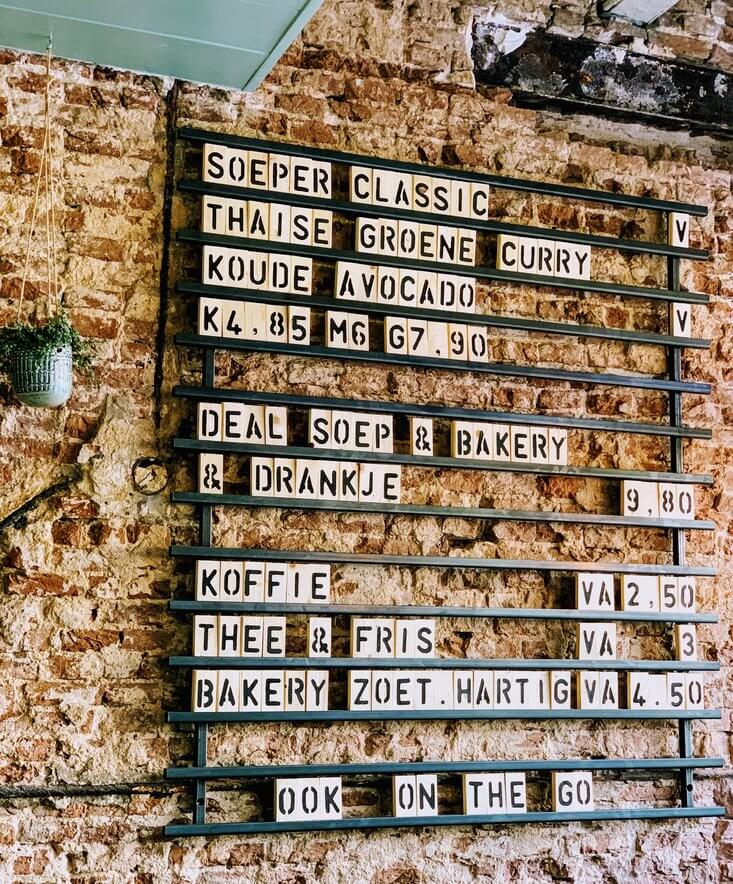 SOEPER CLASSIC
THAISE GROENE CURRY V
KOUDE AVOCADO
K4,85 M6 G7,90 V
DEAL SOEP & BAKERY
& DRANKJE 9,80
KOFFIE VA 2,50
THEE & FRIS VA 3
BAKERY ZOET.HARTIG VA 4.50
OOK ON THE GO